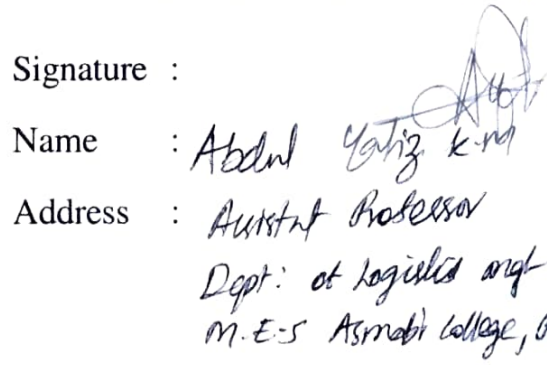 Signature :
Name : Abdul Hafiz K.M
Address : Assistnt Professor
Dept: of Logistics mgt
M.E.S Asmabi College,